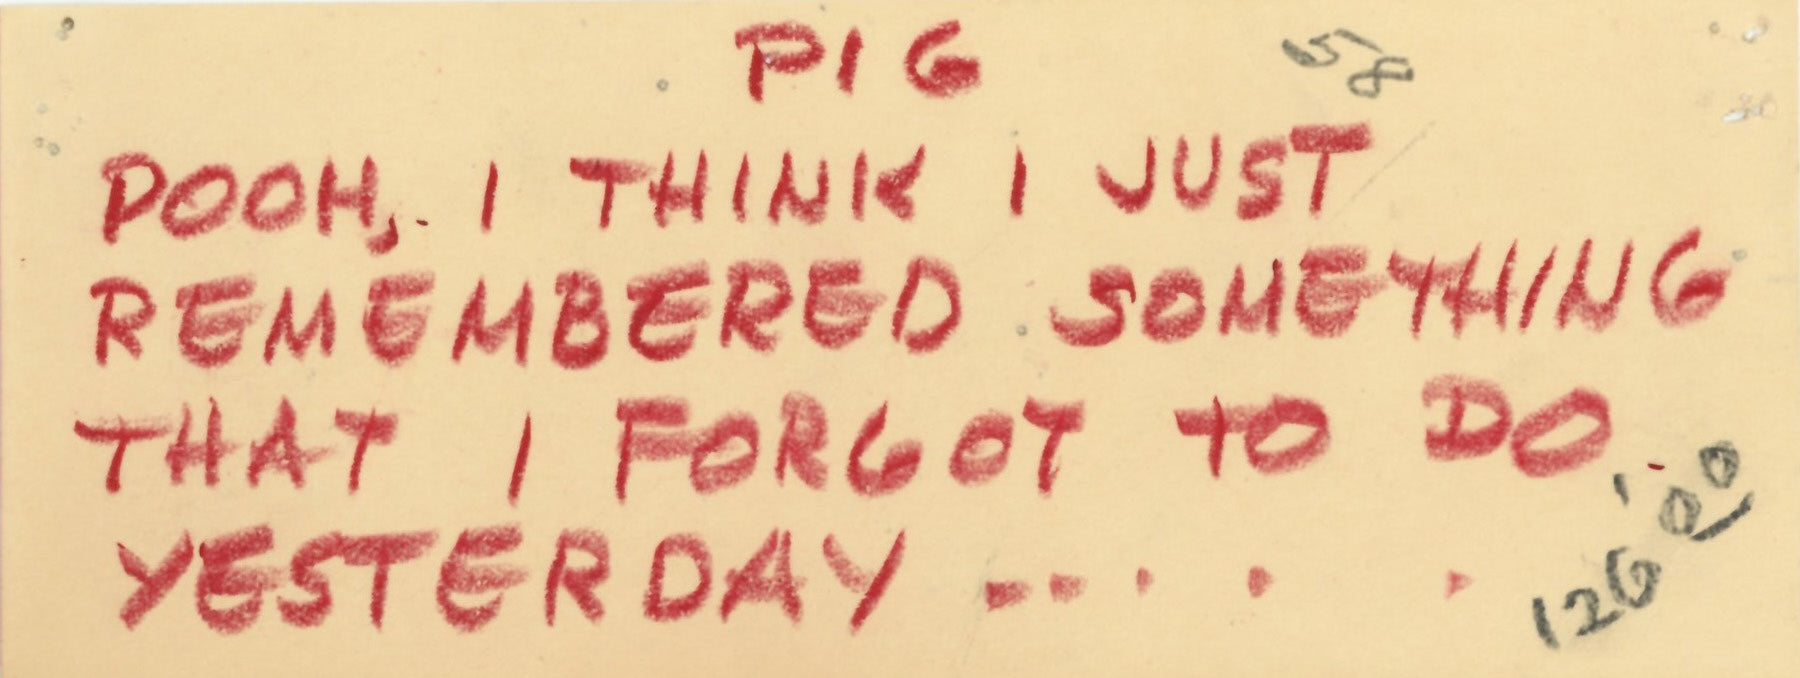 PIG 58
POOH, I THINK I JUST
REMEMBERED SOMETHING
THAT I FORGOT TO DO.
YESTERDAY .....
126'00